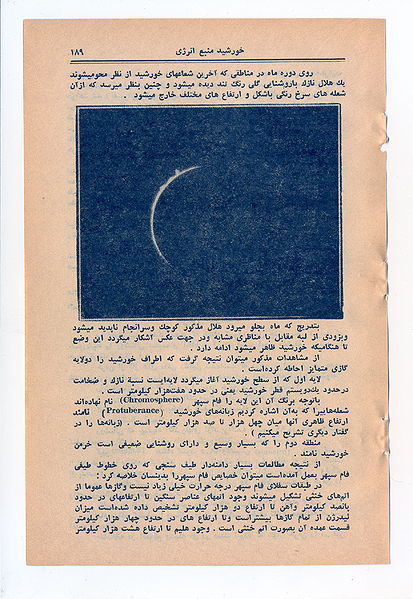 خورشید منبع انرژی ۱۸۹
روی دوره ماه در مناطقی که آخرین شعاعهای خورشید از نظر محومیشوند
یك هلال نازك باروشنایی گلی رنگ تند دیده میشود و چنین بنظر میرسد که ازآن
شعله های سرخ رنگی باشکل و ارتفاع های مختلف خارج میشود .
بتدریج که ماه بجلو میرود هلال مذکور کوچك وسرانجام ناپدید میشود
وبزودی از لبه مقابل با مناظری مشابه ودر جهت عکس آشکار میگردد این وضع
تا هنگامیکه خورشید ظاهر میشود ادامه دارد .
از مشاهدات مذکور میتوان نتیجه گرفت که اطراف خورشید را دولایه
گازی متمایز احاطه کرده‌است .
لایه اول که از سطح خورشید آغاز میگردد لایه‌ایست نسبة نازك و ضخامت
درحدود یك‌دویستم قطر خورشید یعنی در حدود هفت‌هزار کیلومتر است .
باتوجه برنگ آن این لایه را فام سپهر (Chromosphere) نام نهاده‌اند
شعله‌هاییرا که‌بآن اشاره کردیم زبانه‌های خورشید (Protuberance) نامند
ارتفاع ظاهری آنها میان چهل هزار تا صد هزار کیلومتر است . (زبانه‌ها را در
گفتار دیگری تشریح میکنیم) .
منطقه دوم را که بسیار وسیع و دارای روشنایی ضعیفی است خرمن
خورشید نامند .
از نتیجه مطالعات بسیار دامنه‌دار طیف سنجی که روی خطوط طیفی
فام سپهر بعمل آمده‌است میتوان خصایص فام سپهررا بدینسان خلاصه کرد :
در طبقات سفلای فام سپهر درجه حرارت خیلی زیاد نیست وگازها عموما از
اتم‌های خنثی تشکیل میشوند وجود اتمهای عناصر سنگین تا ارتفاعهای در حدود
پانصد کیلومتر وآهن تا ارتفاع دو هزار کیلومتر تشخیص داده شده‌است میزان
ئیدرژن از تمام گازها بیشتراست وتا ارتفاع های در حدود چهار هزار کیلومتر
قسمت عمده آن بصورت اتم خنثی است . وجود هلیم تا ارتفاع هشت هزار کیلومتر